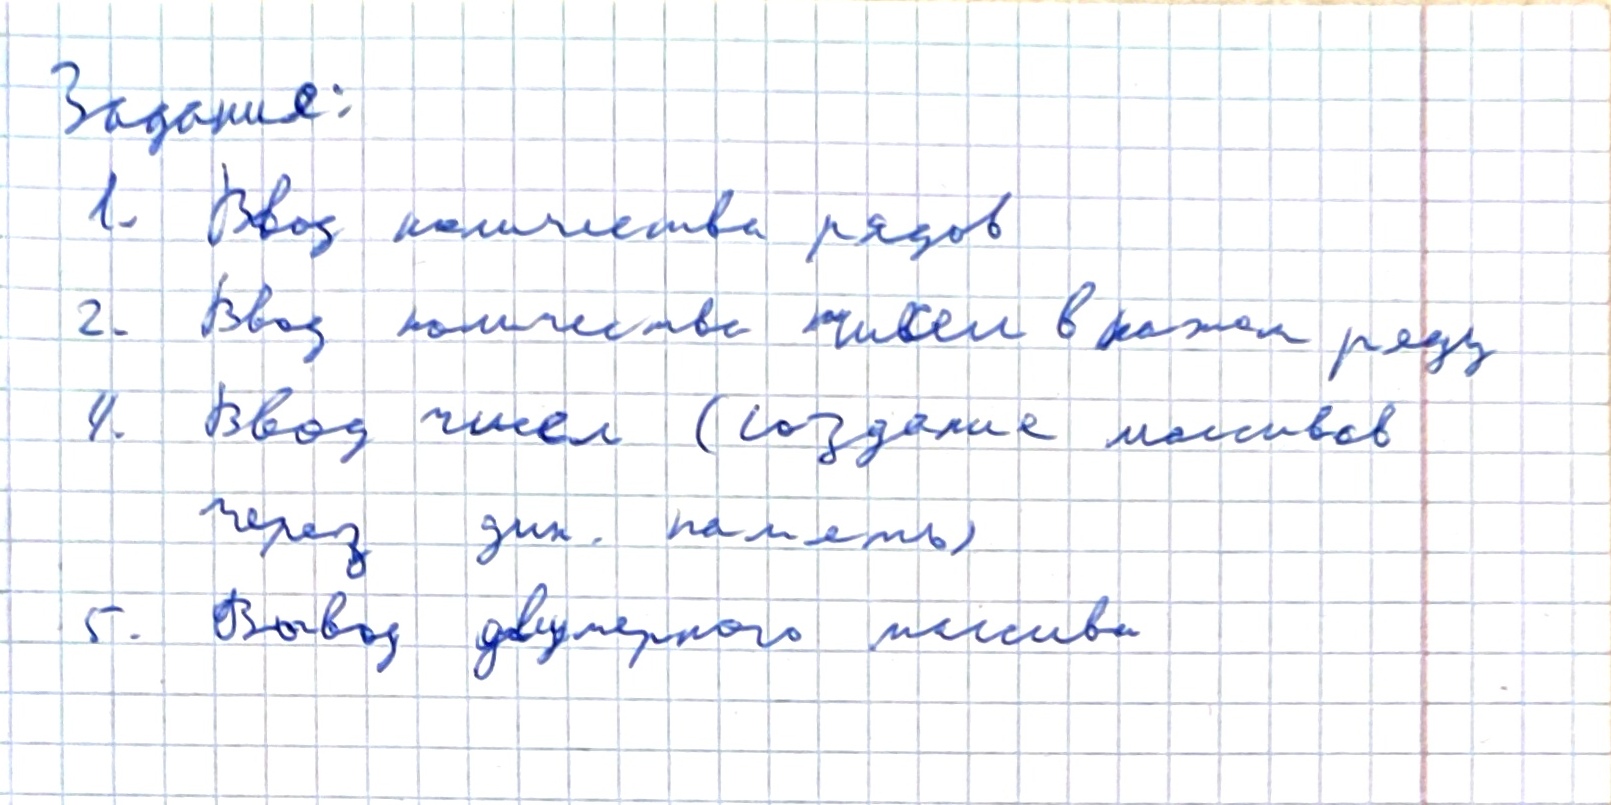 Задание:
1. Ввод количества рядов
2. Ввод количества чисел в кажом ряду
4. Ввод чисел (создание массивов
через дин. память)
5. Вывод двумерного массива